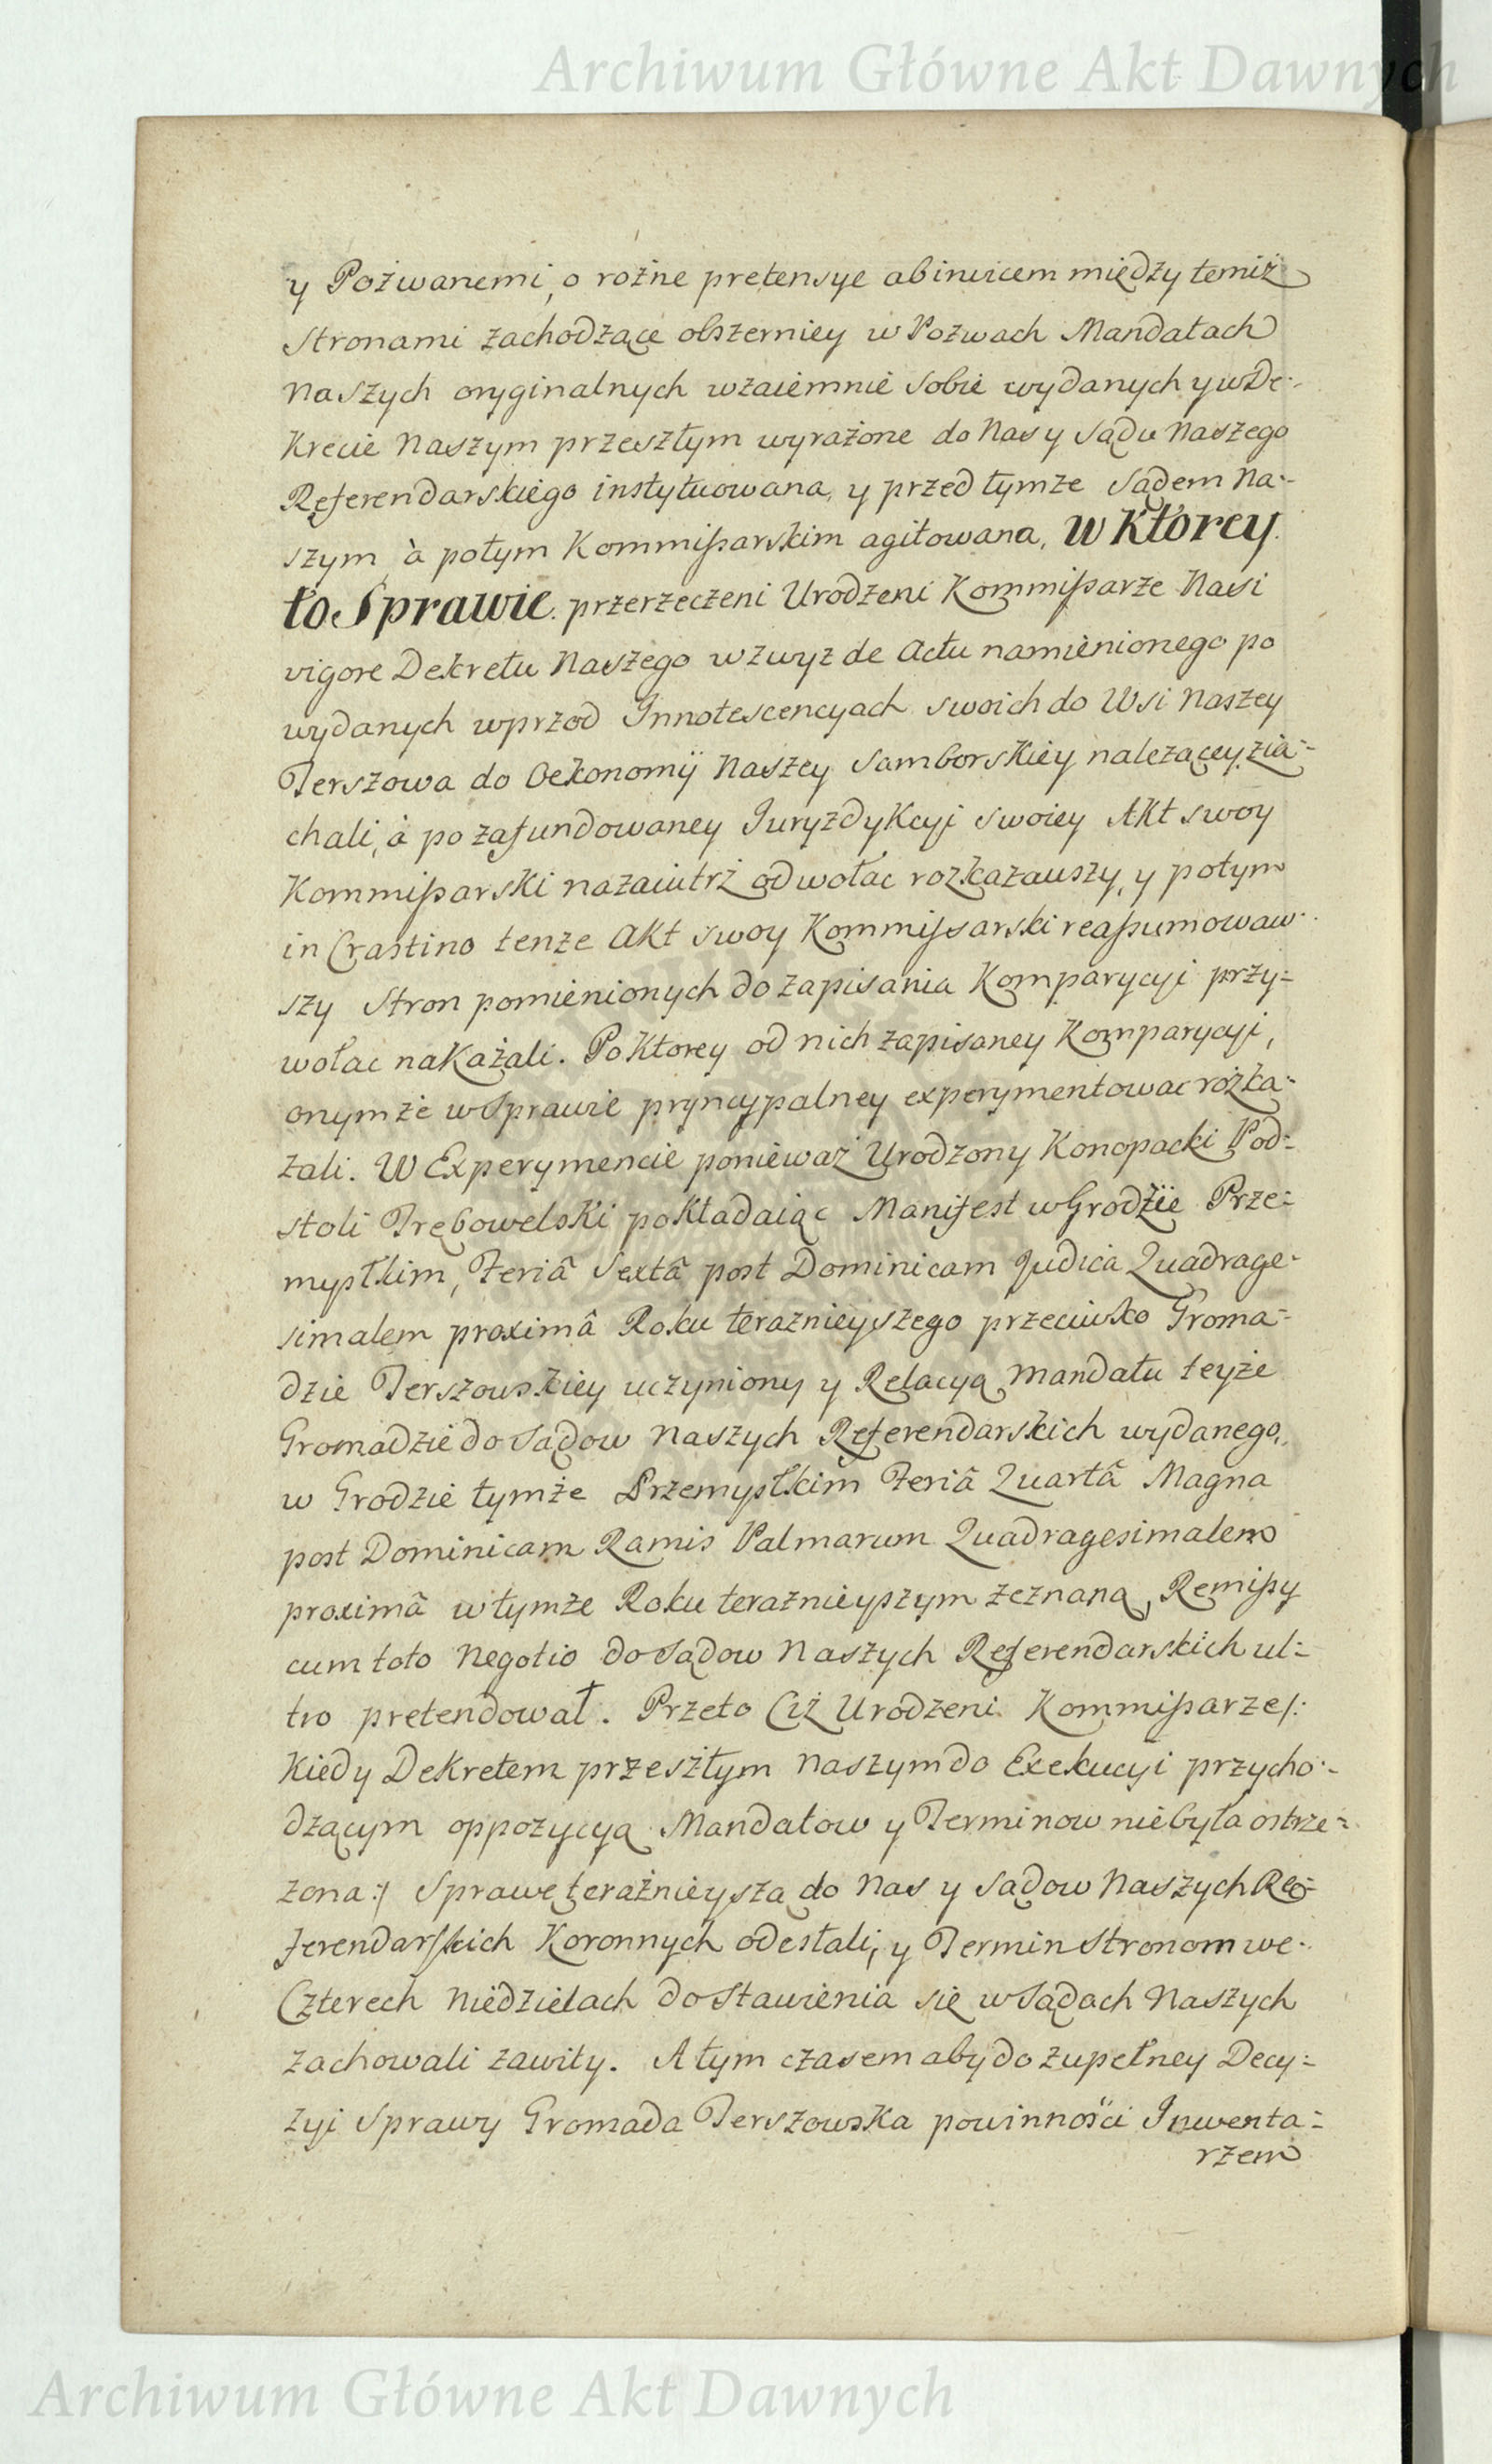 Archiwum Główne Akt Dawnych
y Pozwanemi, o rożne pretensye abinvicem między temiż
Stronami zachodzące obszerniey w Pozwach Mandatach
Naszych oryginalnych wzaiemnie sobie wydanych y w De:
krecie Naszym przeszłym wyrażone do Nas y Sądu Naszego
Referendarskiego instytuowana, y przed tymże Sądem Na:
szym à potym Kommissarskim agitowana, w Ktorey
to Sprawie przerzeczeni Urodzeni Kommissarze Nasi
vigore Dekretu Naszego wzwyz de Actu namienionego po
wydanych wprzod Innotescencyach swoich do Wsi Naszey
Terszowa do Oekonomij Naszey Samborskiey nalezącey zia:
chali, à po zafundowaney Juryzdykcyi swoiey Akt swoy
Kommissarski nazaiutrz odwołac rozkazauszy, y potym
in Crastino tenze Akt swoy Kommissarski reassumowaw:
szy Stron pomienionych do zapisania Komparycyi przy:
wołac nakazali. Po Ktorey od nich zapisaney Komparycyi,
onymże w Sprawie pryncypalney experymentowac rozka:
zali. W Experymencie ponieważ Urodzony Konopacki Pod:
stoli Trębowelski pokładaiąc Manifest w Grodzie Prze:
myslkim, Feriâ Sextâ post Dominicam Judica Quadrage:
simalem proximâ Roku teraznieyszego przeciwko Groma:
dzie Terszowskiey uczyniony y Relacyą Mandatu teyże
Gromadzie do Sądow Naszych Referendarskich wydanego,
w Grodzie tymże Przemyslkim Feriâ Quartâ Magna
post Dominicam Ramis Palmarum Quadragesimalem
proximâ w tymże Roku teraznieyszym zeznaną, Remissy
cum toto Negotio do Sądow Naszych Referendarskich ul:
tro pretendował. Przeto Ciż Urodzeni Kommissarze /:
Kiedy Dekretem przeszłym Naszym do Exekucyi przycho:
dzącym oppozycya Mandatow y Terminow niebyła ostrze:
zona :/ Sprawę terażnieyszą do Nas y Sądow Naszych Re:
ferendarskich Koronnych odesłali, y Termin Stronom we
Czterech Niedzielach do Stawienia się w Sądach Naszych
zachowali zawity. A tym czasem aby do zupełney Decy:
zyi Sprawy Gromada Terszowska powinności Inwenta:
rzem
Archiwum Główne Akt Dawnych